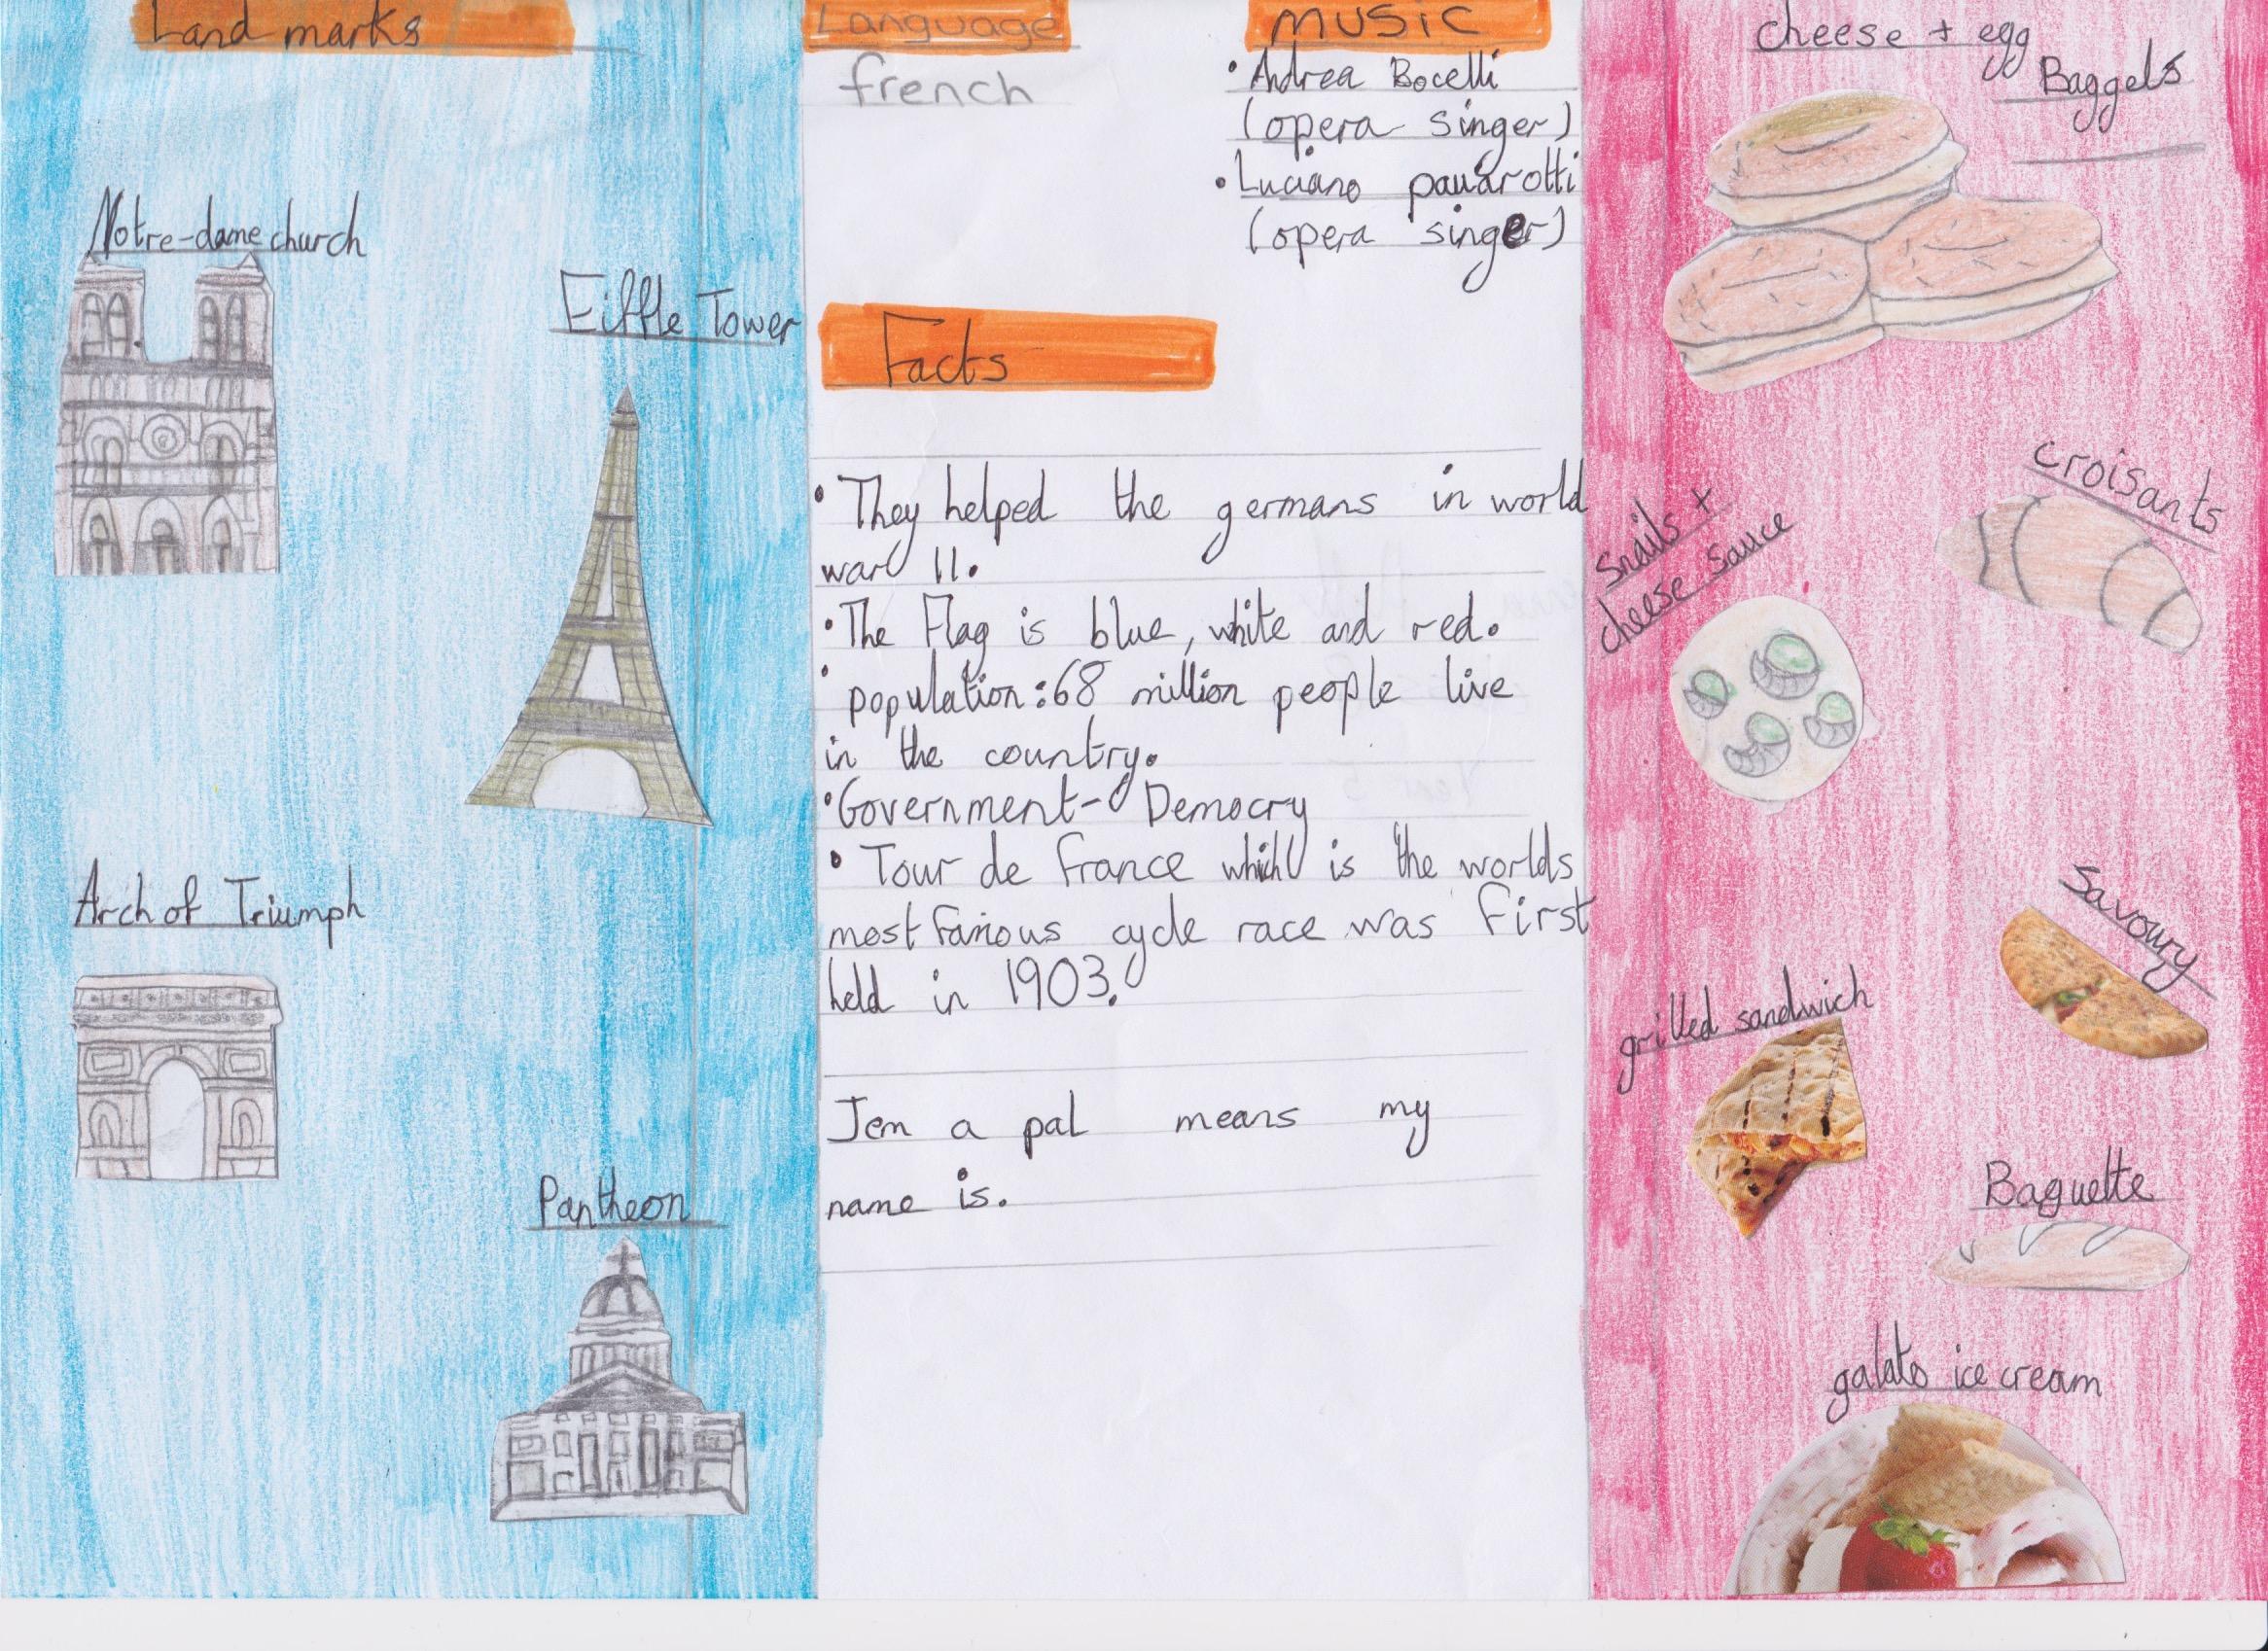 Land marks
Notre-dame church
Eiffle Tower
Arch of Triumph
Pantheon
Language
french
MUSIC
• Andrea Bocelli
(opera singer)
• Luciano pavarotti
(opera singer)
Facts
• They helped the germans in world
war 11.
• The Flag is blue, white and red.
• population: 68 million people live
in the country.
• Government- Democry
• Tour de france which is the worlds
most famous cycle race was first
held in 1903.
Jem a pal means my
name is.
cheese + egg
Baggels
croisants
Snails +
cheese sauce
Savoury
grilled sandwich
Baguette
galato ice cream